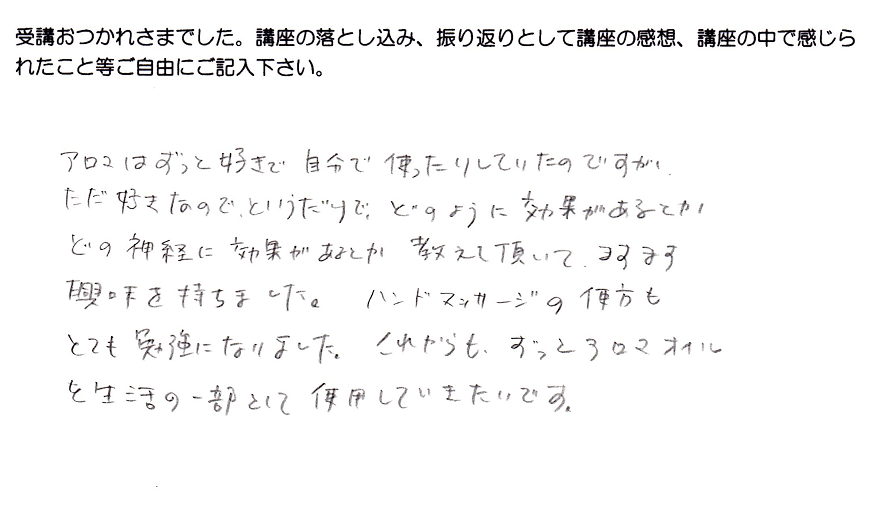 受講おつかれさまでした。講座の落とし込み、振り返りとして講座の感想、講座の中で感じら
れたこと等ご自由にご記入下さい。
アロマはずっと好きで 自分で 使ったりしていたのですが、
ただ好きなので、というだけで、どのように効果があるとか
どの神経に効果があるとか 教えて頂いて、ますます
興味を持ちました。 ハンドマッサージの使方も
とても勉強になりました。これからも、ずっとアロマオイル
を生活の一部として使用していきたいです。